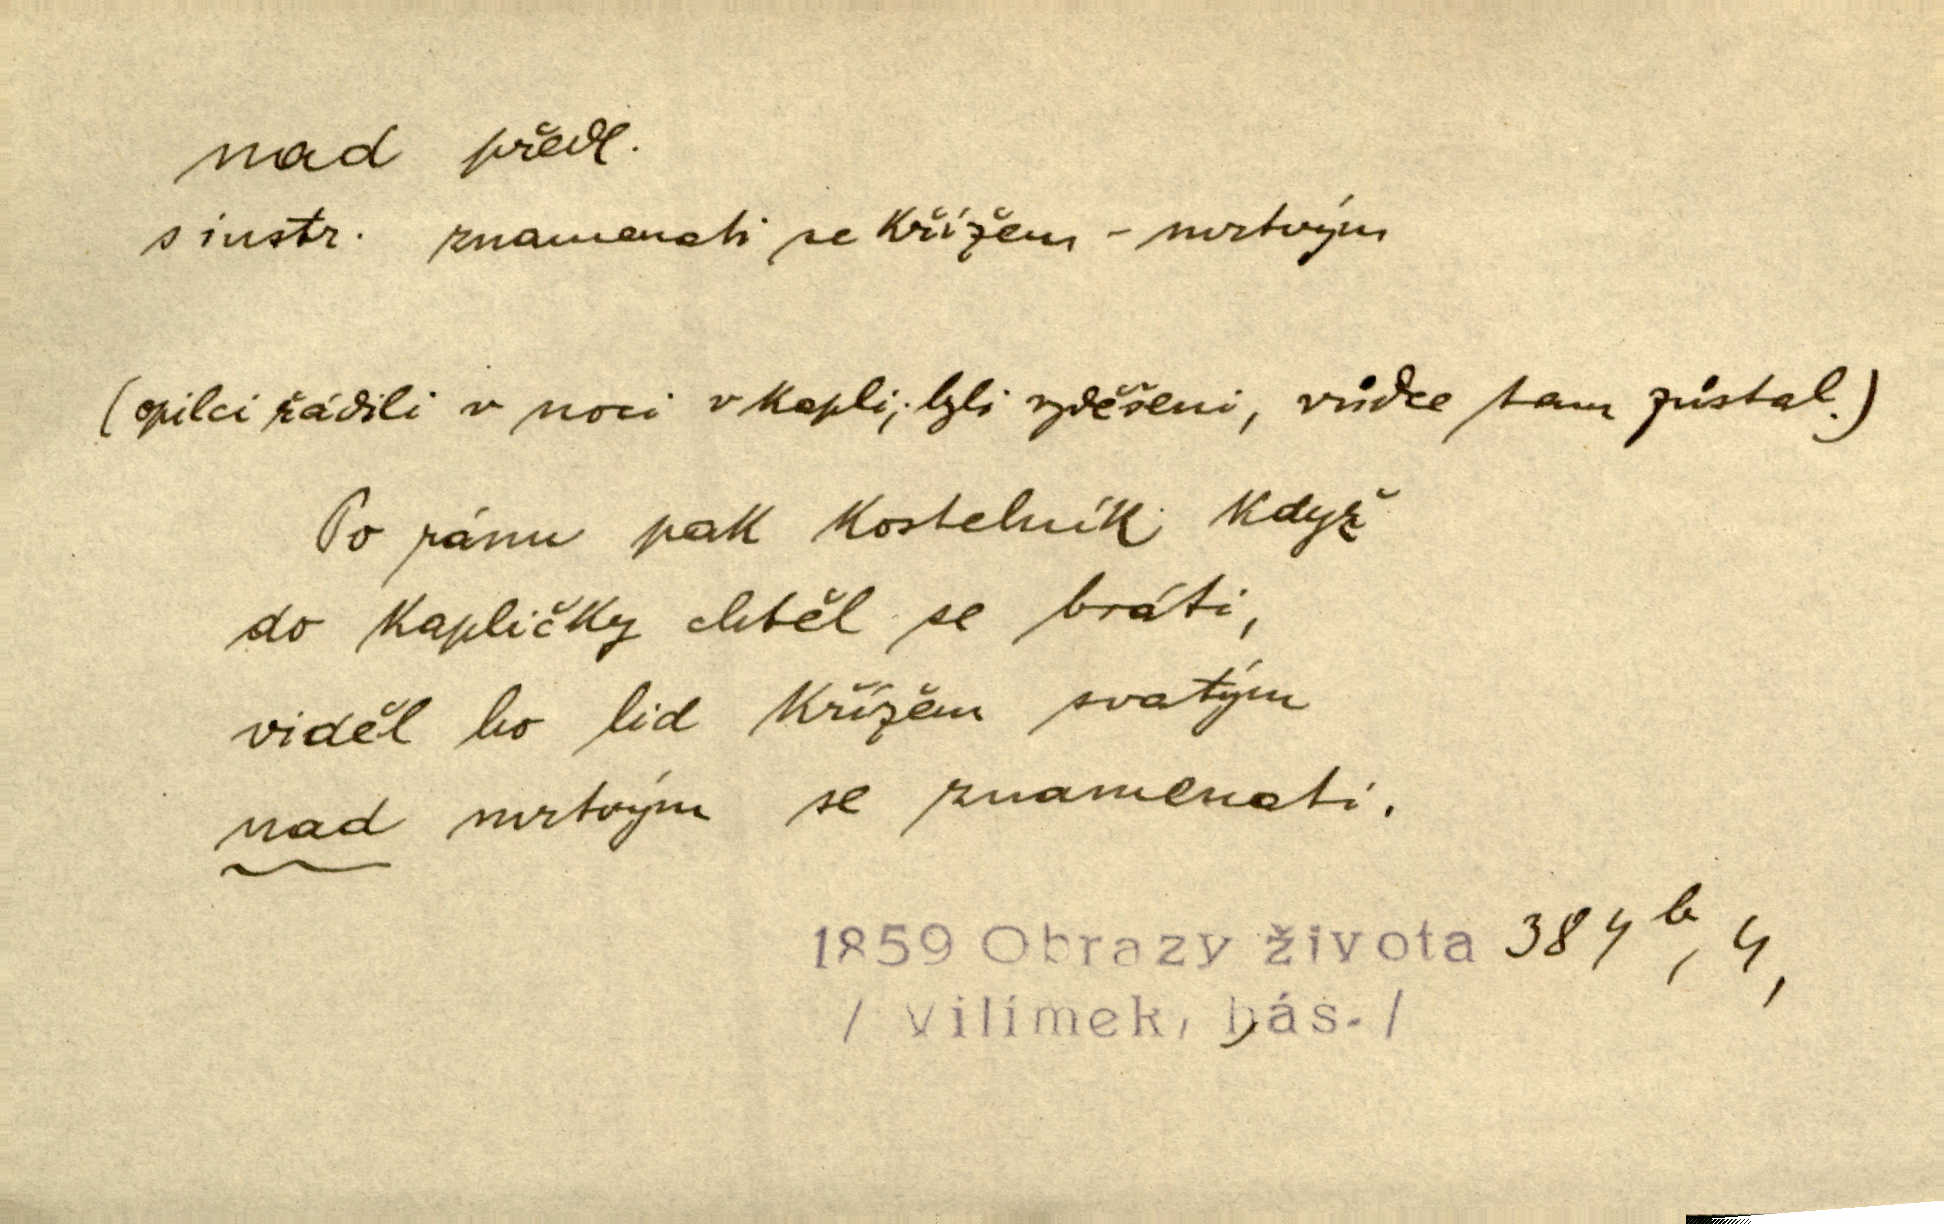 nad předl.
s instr. znamenati se křížem - mrtvým
(opilci řádili v noci v kapli; byli vyděšeni, vůdce tam zůstal.)
Po ránu pak kostelník když
do kapličky chtěl se bráti,
viděl ho lid křížem svatým
nad mrtvým se znamenati.
1859 Obrazy života 384 b, 4,
/ Vilímek, bás. /